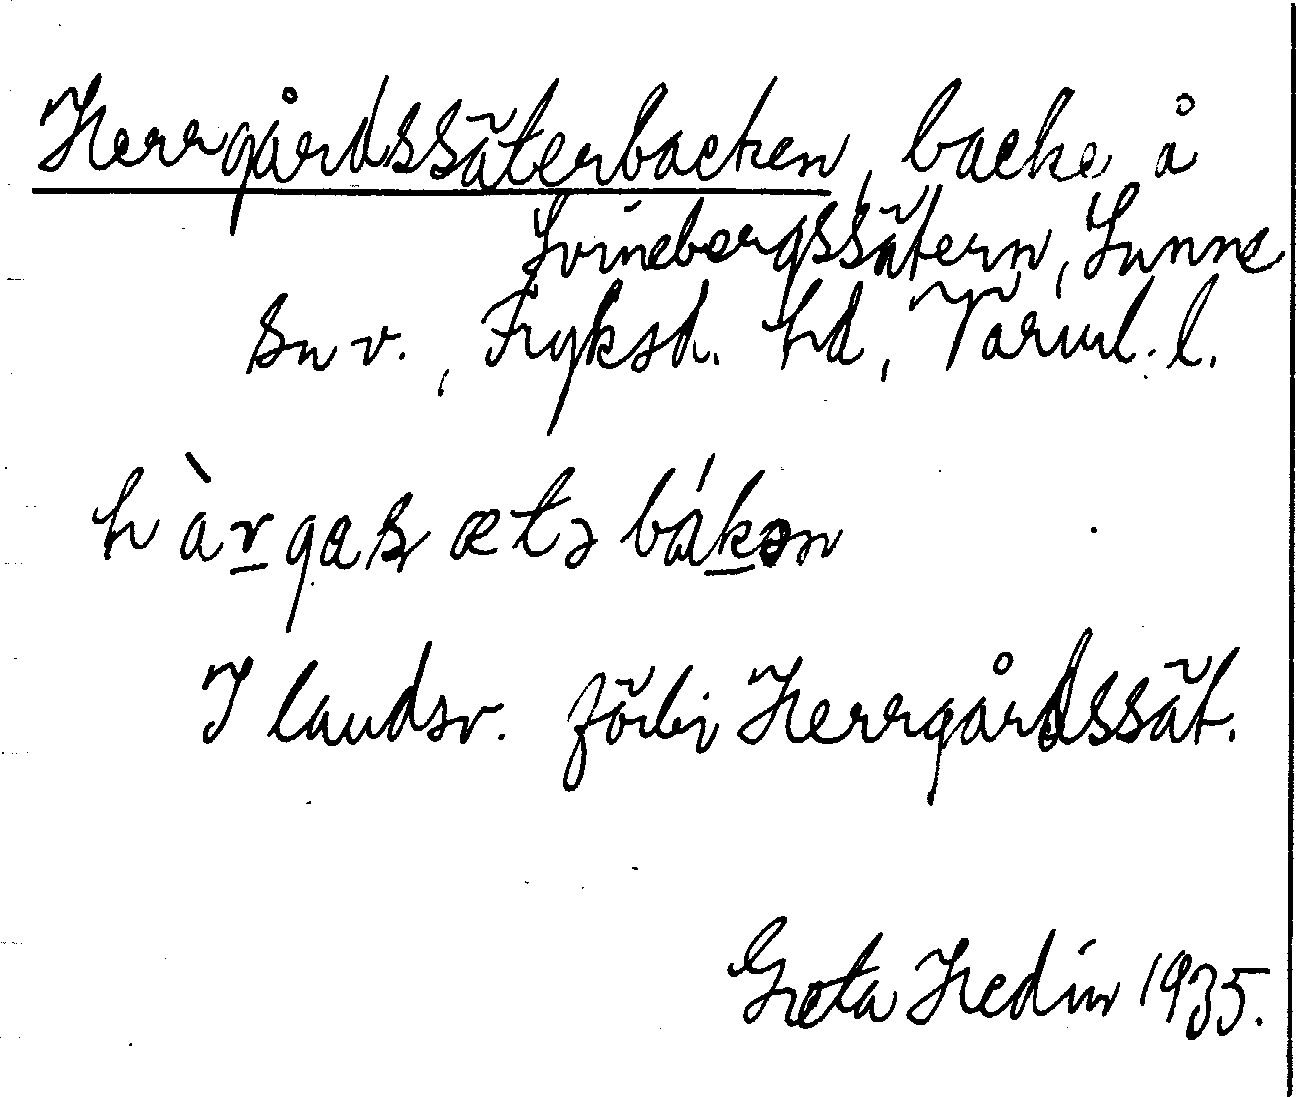 Herrgårdssäterbacken, backe å
Svinebergssätern, Sunne
sn v., Fryksd. hd, Värml. l.
hàrgasætəbákən
I landsv. förbi Herrgårdssät.
Greta Hedin 1935.